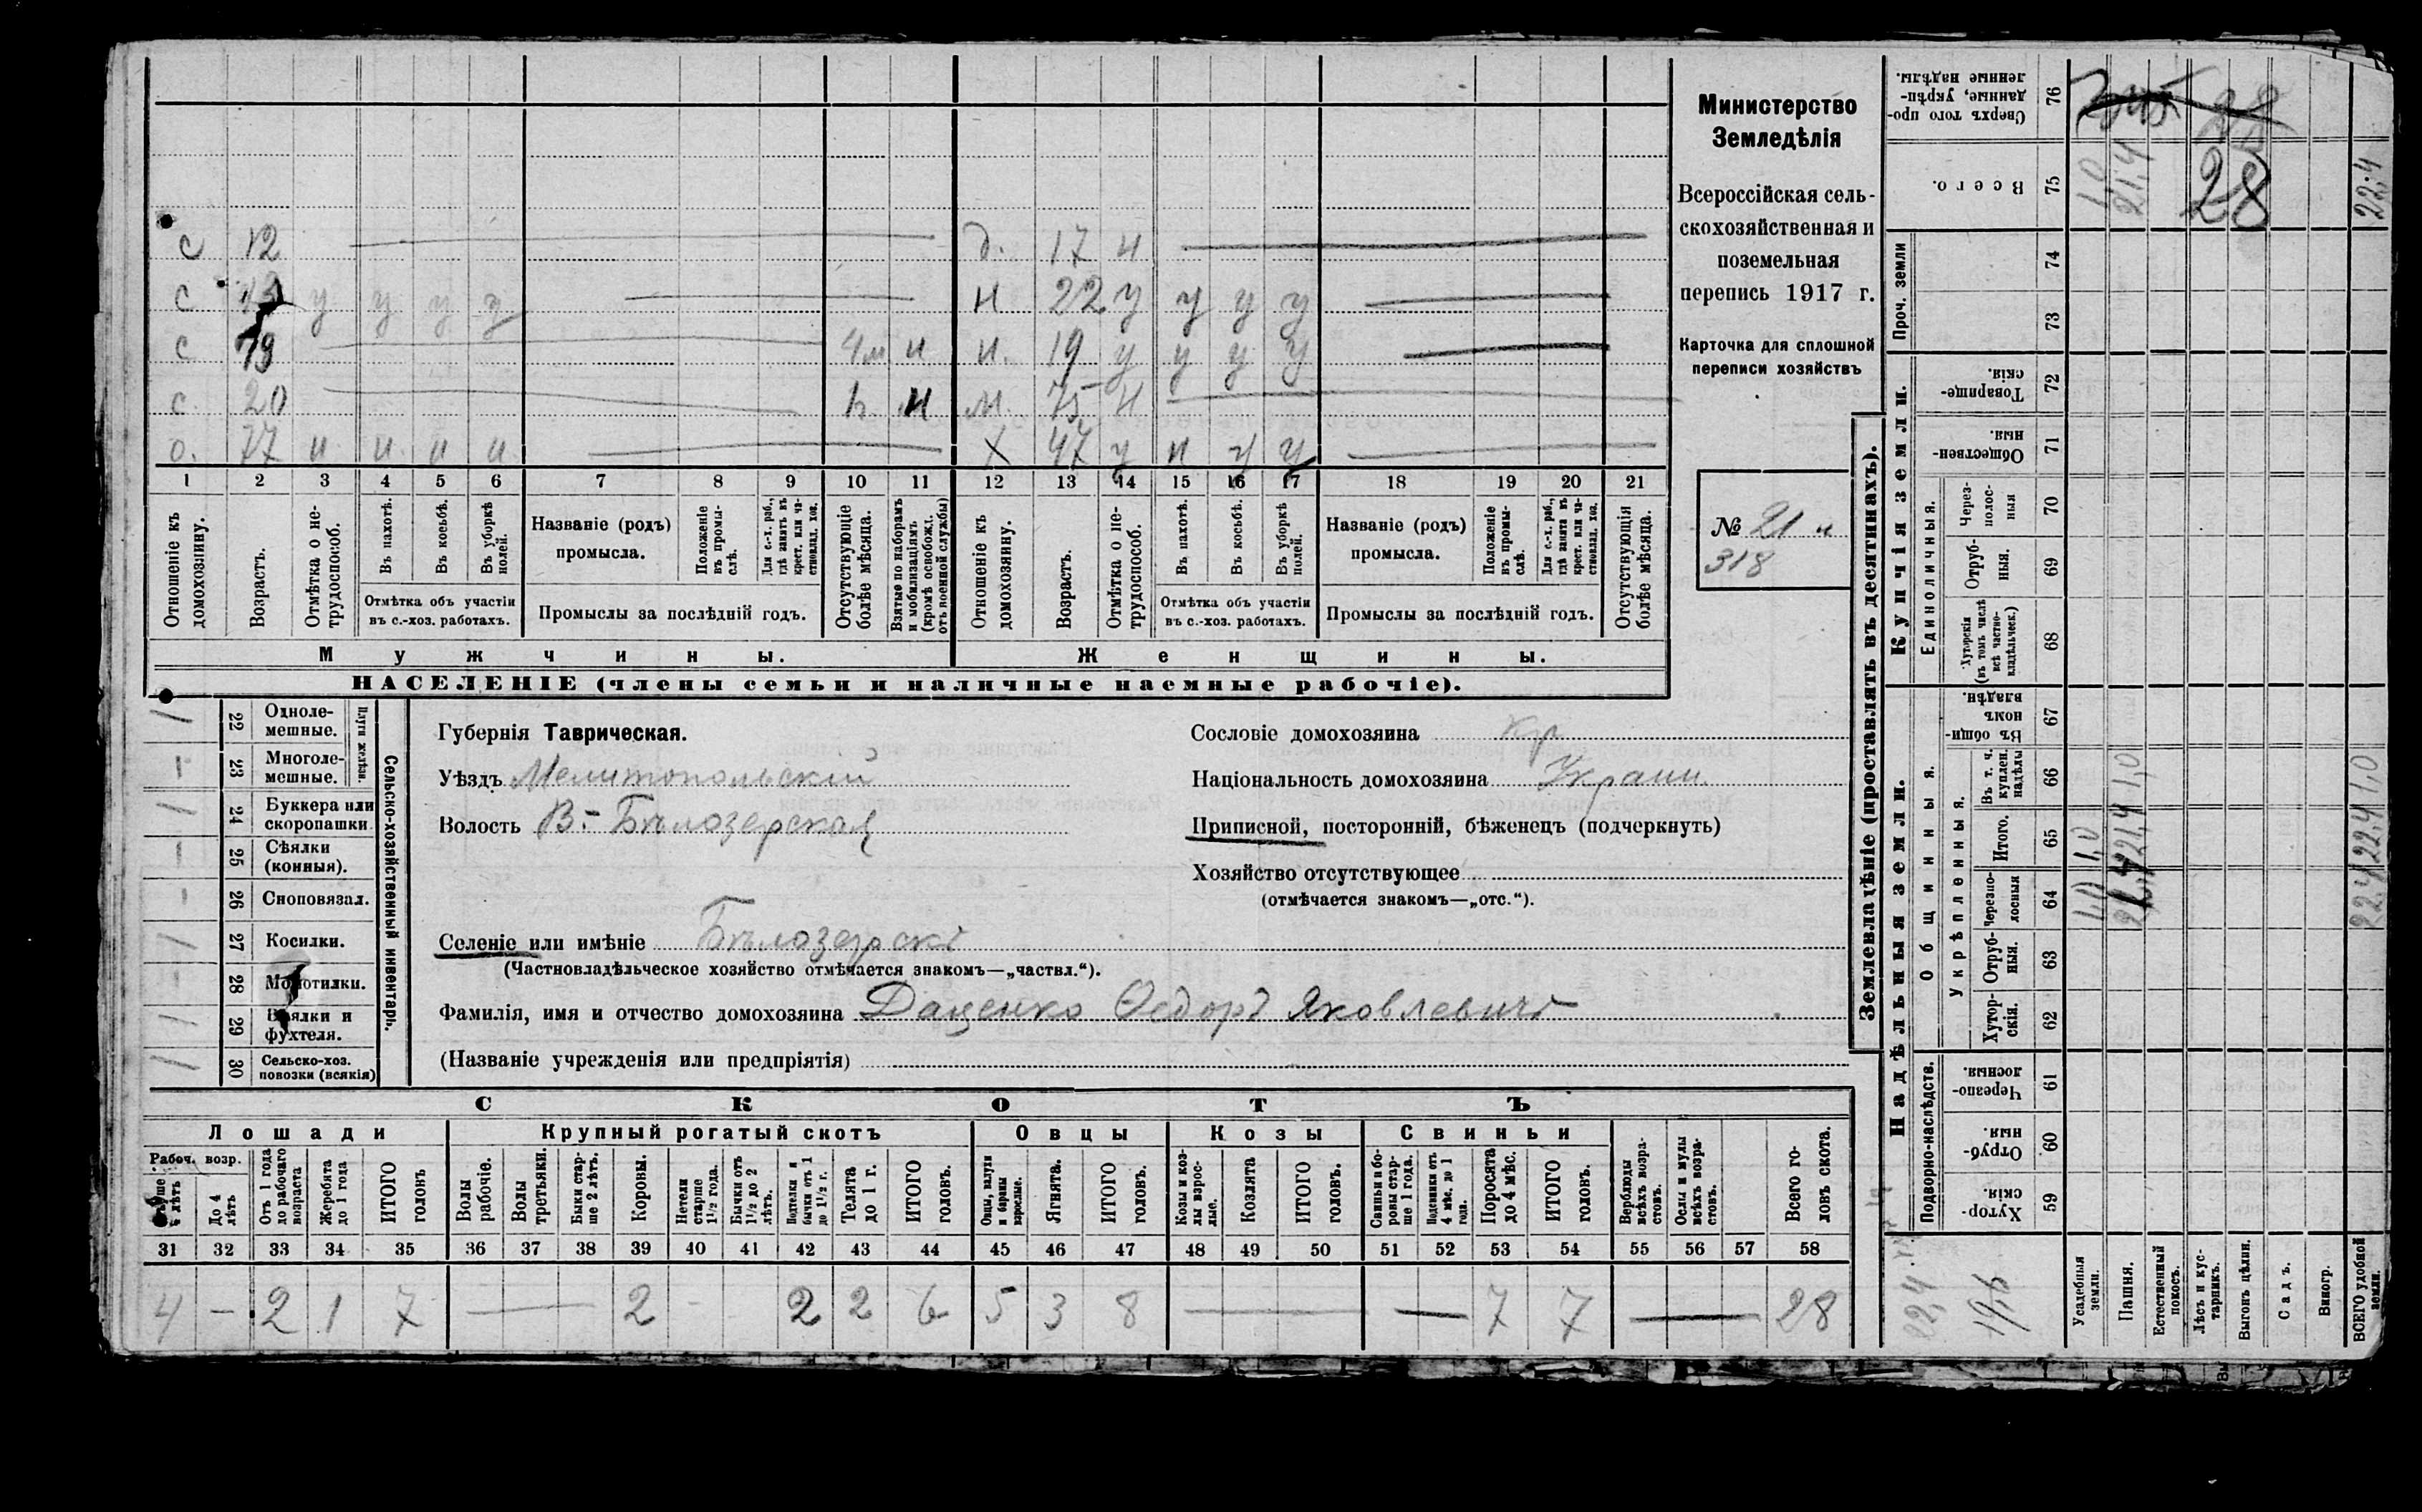 с 12 д. 17 н
с 13 у у у у н 22 у у у у
с 19 4м н н. 19 у у у у
с. 20 н м. 75 н
о. 77 н н н н х 47 у н у у
1 2 3 4 5 6 7 8 9 10 11 12 13 14 15 16 17 18 19 20 21
Отношеніе къ домохозяину.
Возрастъ.
Отмѣтка о не-трудоспособ.
Въ пахотѣ.
Въ косьбѣ.
Въ уборкѣ полей.
Отмѣтка объ участіи
въ с.-хоз. работахъ.
Названіе (родъ)
промысла.
Положеніе въ промы-слѣ.
Для с.-х. раб., гдѣ занятъ въ крест. или ча-стновлад. хоз.
Промыслы за послѣдній годъ.
Отсутствующіе болѣе мѣсяца.
Взятые по наборамъ и мобилизаціямъ (кромѣ освобожд. отъ военной службы)
Отношеніе къ домохозяину.
Возрастъ.
Отмѣтка о не-трудоспособ.
Въ пахотѣ.
Въ косьбѣ.
Въ уборкѣ полей.
Отмѣтка объ участіи
въ с.-хоз. работахъ.
Названіе (родъ)
промысла.
Положеніе въ промы-слѣ.
Для с.-х. раб., гдѣ занятъ въ крест. или ча-стновлад. хоз.
Промыслы за послѣдній годъ.
Отсутствующія болѣе мѣсяца.
Мужчины.
Женщины.
НАСЕЛЕНІЕ (члены семьи и наличные наемные рабочіе).
Министерство
Земледѣлія
Всероссійская сель-
скохозяйственная и
поземельная
перепись 1917 г.
Карточка для сплошной
переписи хозяйствъ
№ 21 н
318
Сельско-хозяйственный инвентарь.
Плуги желѣзн.
1 22 Одноле-мешные.
23 Многоле-мешные.
1 24 Буккера или скоропашки
25 Сѣялки (конныя).
26 Сноповязал.
1 27 Косилки.
28 Молотилки.
1 29 Вѣялки и фухтеля.
1 30 Сельско-хоз. повозки (всякія)
Губернія Таврическая.
Уѣздъ Мелитопольскій
Волость В-Бѣлозерская
Селеніе или имѣніе Бѣлозерскъ
(Частновладѣльческое хозяйство отмѣчается знакомъ—„частвл.“).
Фамилія, имя и отчество домохозяина Даценко Ѳедоръ Яковлевичъ
(Названіе учрежденія или предпріятія)
Сословіе домохозяина кр
Національность домохозяина Украин.
Приписной, посторонній, бѣженецъ (подчеркнуть)
Хозяйство отсутствующее
(отмѣчается знакомъ—„отс.“).
СКОТЪ
Лошади Крупный рогатый скотъ Овцы Козы Свиньи
Рабоч. возр.
До 4 лѣтъ
Отъ 1 года до рабочаго возраста
Жеребята до 1 года
ИТОГО головъ
Волы рабочіе.
Волы третьяки.
Быки стар-ше 2 лѣтъ.
Коровы.
Нетели старше 1½ года.
Бычки отъ 1½ до 2 лѣтъ.
Подтелки и бычки отъ 1 до 1½ г.
Телята до 1 г.
ИТОГО головъ.
Овцы, валухи и бараны взрослые.
Ягнята.
ИТОГО головъ.
Козы и коз-лы взрос-лые.
Козлята
ИТОГО головъ.
Свиньи и бо-ровы стар-ше 1 года.
Подсвинки отъ 4 мѣс. до 1 года.
Поросята до 4 мѣс.
ИТОГО головъ.
Верблюды всѣхъ возра-стовъ.
Ослы и мулы всѣхъ возра-стовъ.
Всего го-ловъ скота.
31 32 33 34 35 36 37 38 39 40 41 42 43 44 45 46 47 48 49 50 51 52 53 54 55 56 57 58
4 – 2 1 7 — 2 – 2 2 6 5 3 8 — — 7 7 — 28
Землевладѣніе (проставлять въ десятинахъ).
Надѣльныя земли.
Купчія земли.
Проч. земли
Подворно-наслѣдств.
Общинныя.
Укрѣпленныя.
Единоличныя.
Сверхъ того про-данные, укрѣп-ленные надѣлы. 76
Всего. 75 1,0 21,4 28 22,4
74
73
Товарище-скія. 72
Обществен-ныя. 71
Через-полос-ныя 70
Отруб-ныя. 69
Хуторскія (въ томъ числѣ всѣ частно-владѣльческ.) 68
Въ общин-номъ владѣн. 67
Въ т. ч. куплен. надѣлы 66 1,0 1,0
Итого. 65 1,0 21,4 22,4
Черезпо-лосныя 64 22,4
Отруб-ныя. 63
Хутор-скія. 62
Черезпо-лосныя. 61
Отруб-ныя. 60
Хутор-скія. 59
22,4
19,6
Усадебныя земли.
Пашня.
Естественный покосъ.
Лѣсъ и кус-тарникъ.
Выгонъ цѣлин.
Садъ.
Виногр.
ВСЕГО удобной земли.